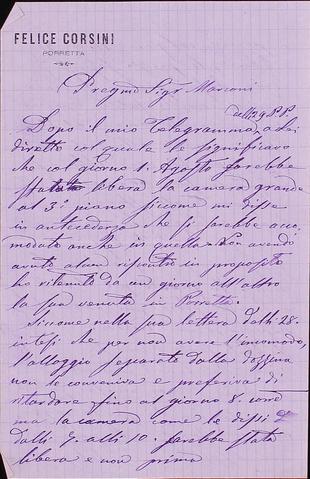 FELICE CORSINI
PORRETTA
Pregmo Sigr Marconi
dell 29 P.P.
Dopo il mio Telegramma, a Lei
diretto col quale le significavo
che col giorno 1. Agosto sarebbe
stata libera la camera grande
al 3º piano siccome mi disse
in antecedenza che si sarebbe acco,
modato anche in quella. Non avendo
avuto alcun riscontro in proposito
ho ritenuto da un giorno all'altro
la sua venuta in Porretta.
Siccome nella sua lettera dalli 28.
intesi che per non avere l'incomodo,
l'alloggio separato dalla dozzina
non le conveniva e preferiva di
ritardare fino al giorno 8. corre
ma la camera come le dissi
dalli 9. alli 10. sarebbe stata
libera e non prima